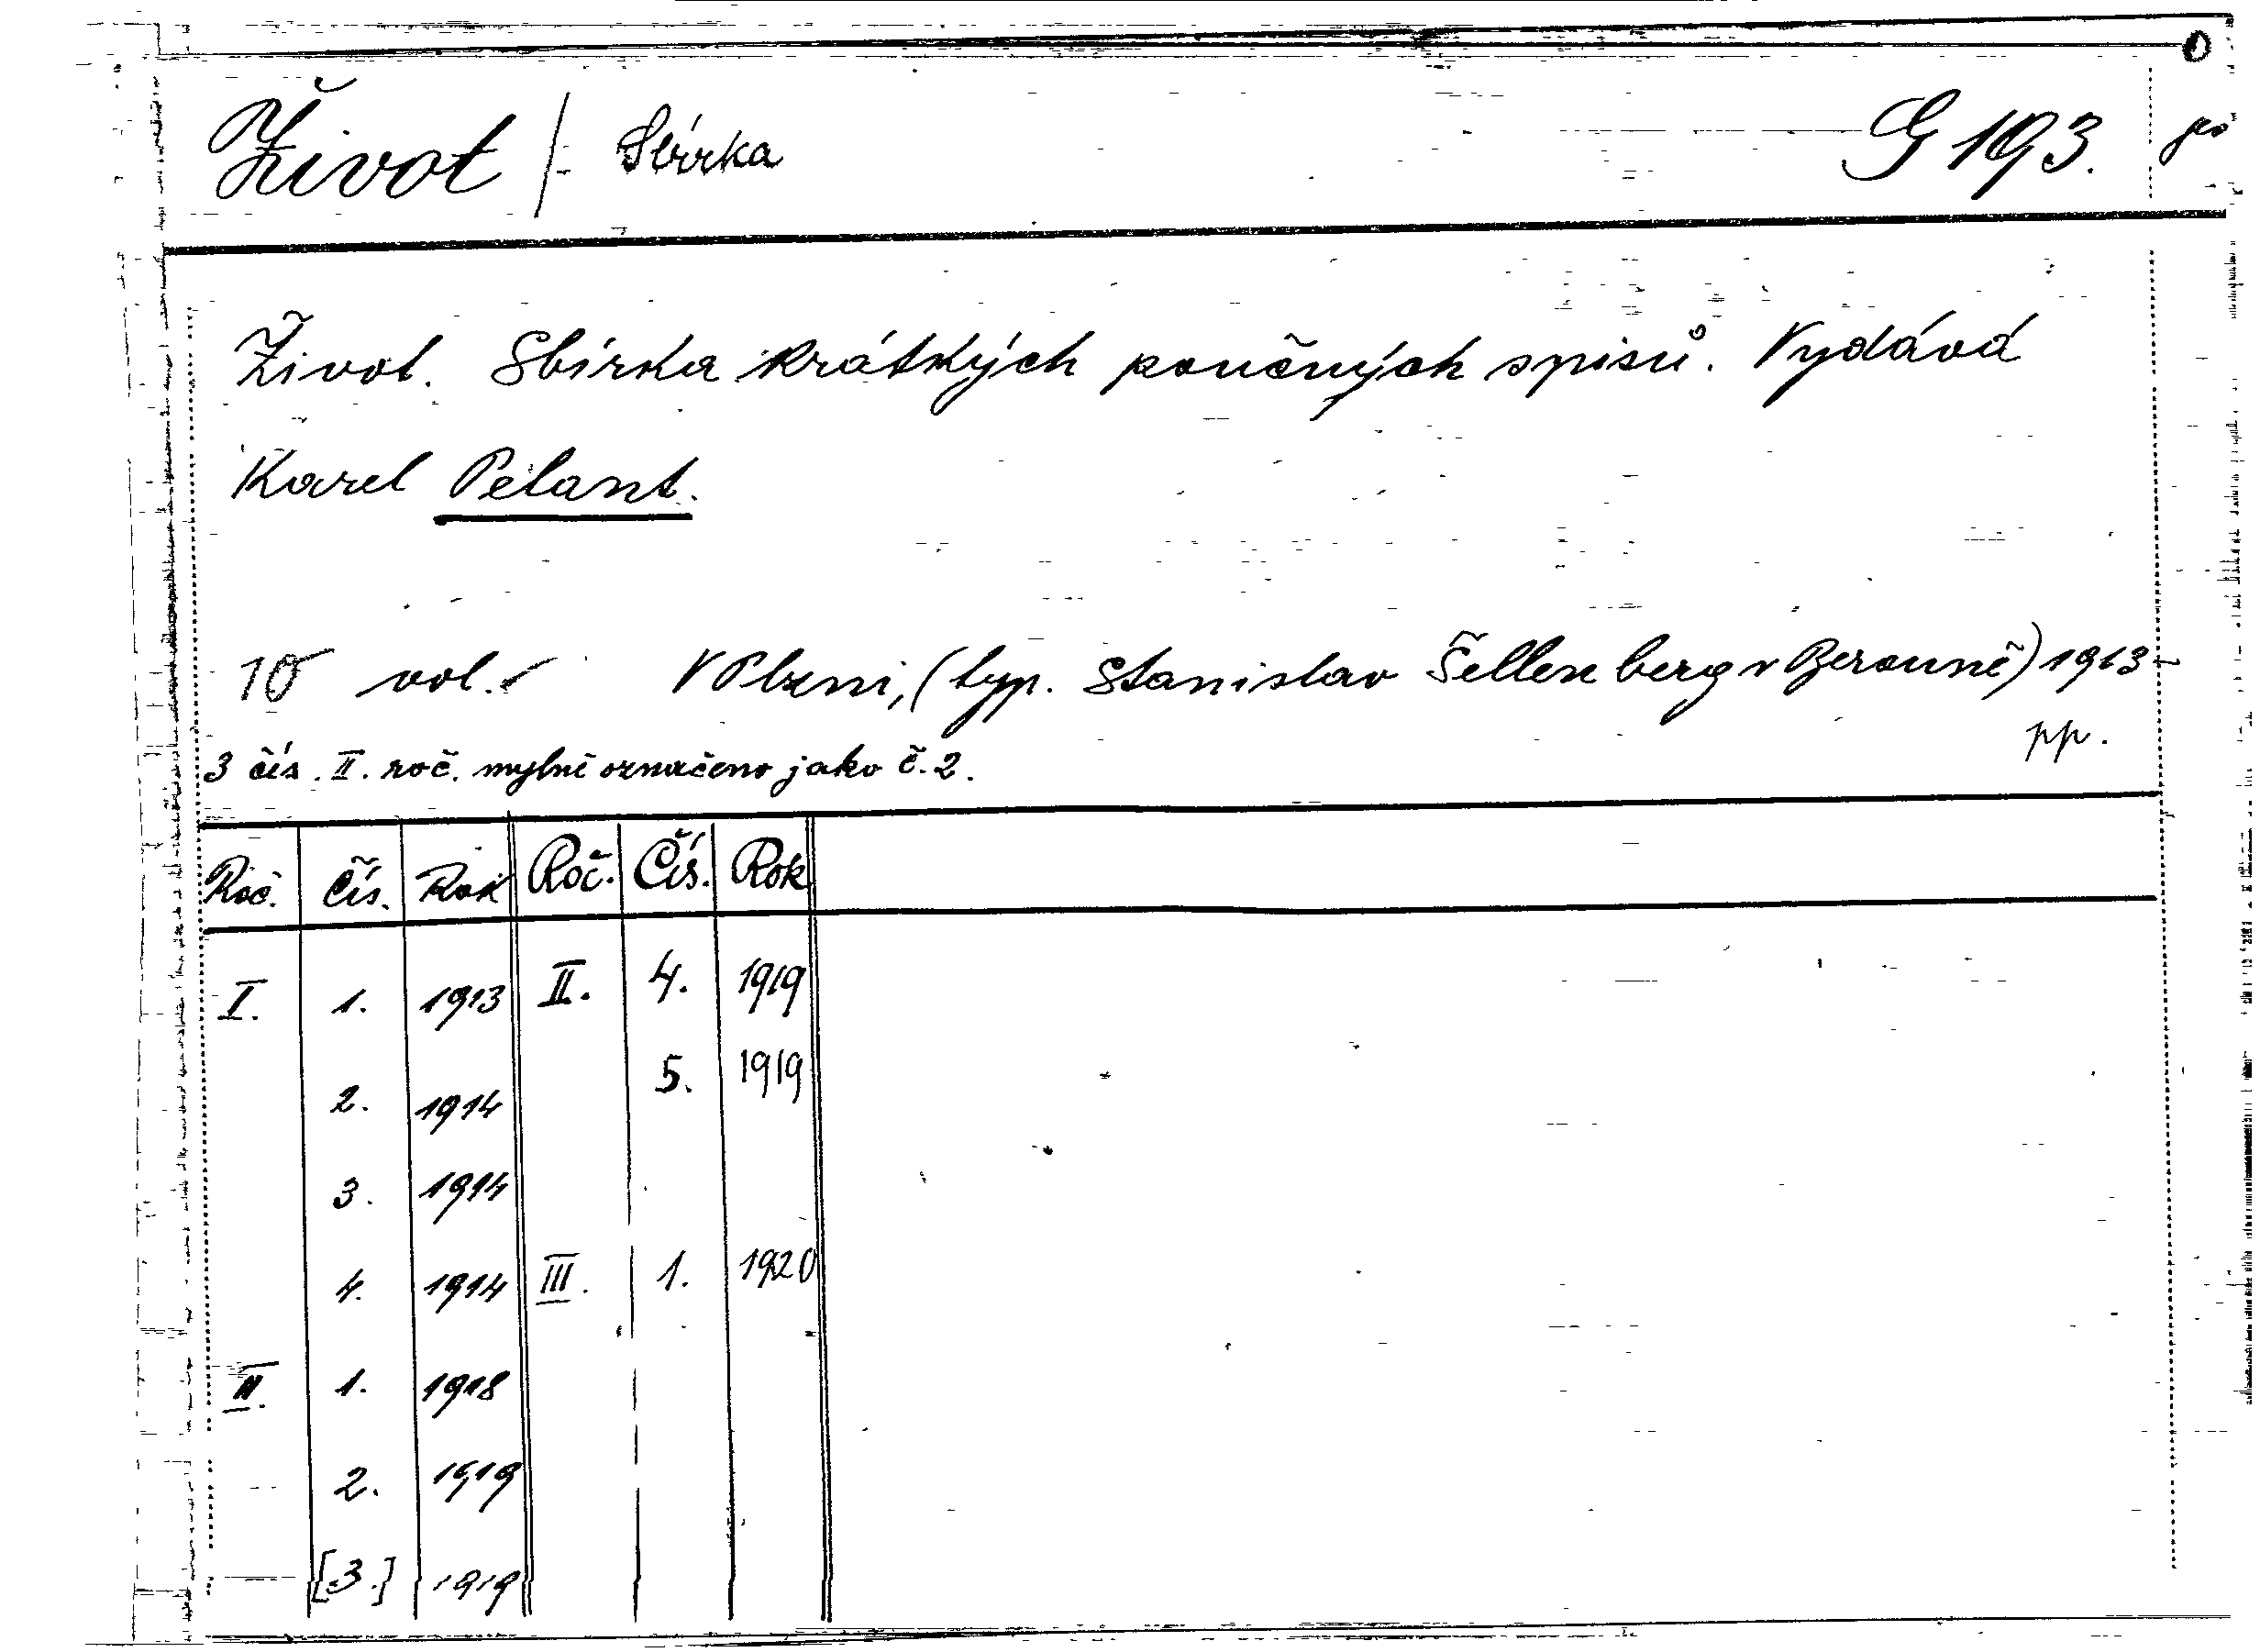 Život / Sbírka G 193.
Život. Sbírka krátkých poučných spisů. Vydává
Karel Pelant.
10 vol. V Plzni, (typ. Stanislav Šellenberg v Berouně) 1913-
pp.
3 čís. II. roč. mylně označeno jako č. 2.
Roč. Čís. Rok Roč. Čís. Rok
I. 1. 1913 II. 4. 1919
2. 1914 5. 1919
3. 1914
4. 1914 III. 1. 1920
II. 1. 1918
2. 1919
[3.] 1919